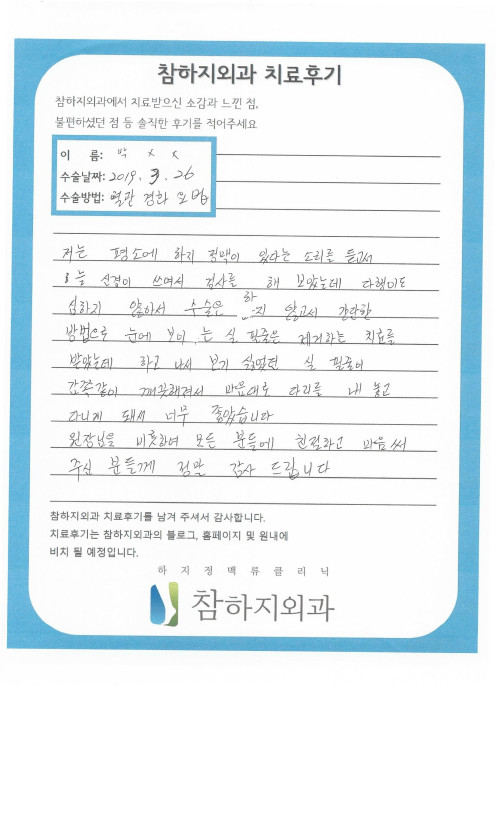 참하지외과 치료후기
참하지외과에서 치료받으신 소감과 느낀 점,
불편하셨던 점 등 솔직한 후기를 적어주세요
이 름: 박 x x
수술날짜: 2019. 3. 26
수술방법: 혈관 경화 요법
저는 평소에 하지 정맥이 있다는 소리를 듣고서
늘 신경이 쓰여서 검사를 해 보았는데 다행이도
심하지 않아서 수술은 하지 않고서 간단한
방법으로 눈에 보이는 실 핏줄은 제거하는 치료를
받았는데 하고 나서 보기 싫었던 실 핏줄이
감쪽같이 깨끗해져서 마음대로 다리를 내 놓고
다니게 돼서 너무 좋았습니다
원장님을 비롯하여 모든 분들에 친절하고 마음 써
주신 분들께 정말 감사 드립니다
참하지외과 치료후기를 남겨 주셔서 감사합니다.
치료후기는 참하지외과의 블로그, 홈페이지 및 원내에
비치 될 예정입니다.
하지정맥류클리닉
참하지외과